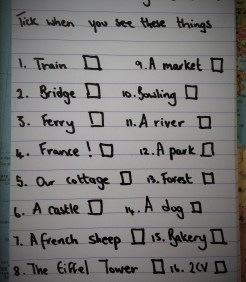 Tick when you see these things
1. Train
2. Bridge
3. Ferry
4. France!
5. Our cottage
6. A castle
7. A french sheep
8. The Eiffel Tower
9. A market
10. Bowling
11. A river
12. A park
13. Forest
14. A dog
15. Bakery
16. 2CV